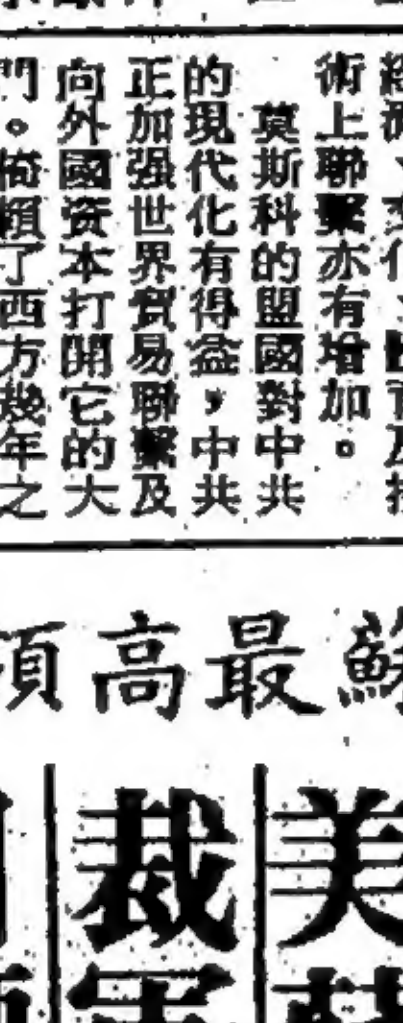 術上聯繫亦有增加。
莫斯科的盟國對中共
的現代化有得益，中共
正加强世界貿易聯繫及
向外國資本打開它的大
門。倚賴了西方幾年之
蘇最高領
美蘇
裁軍